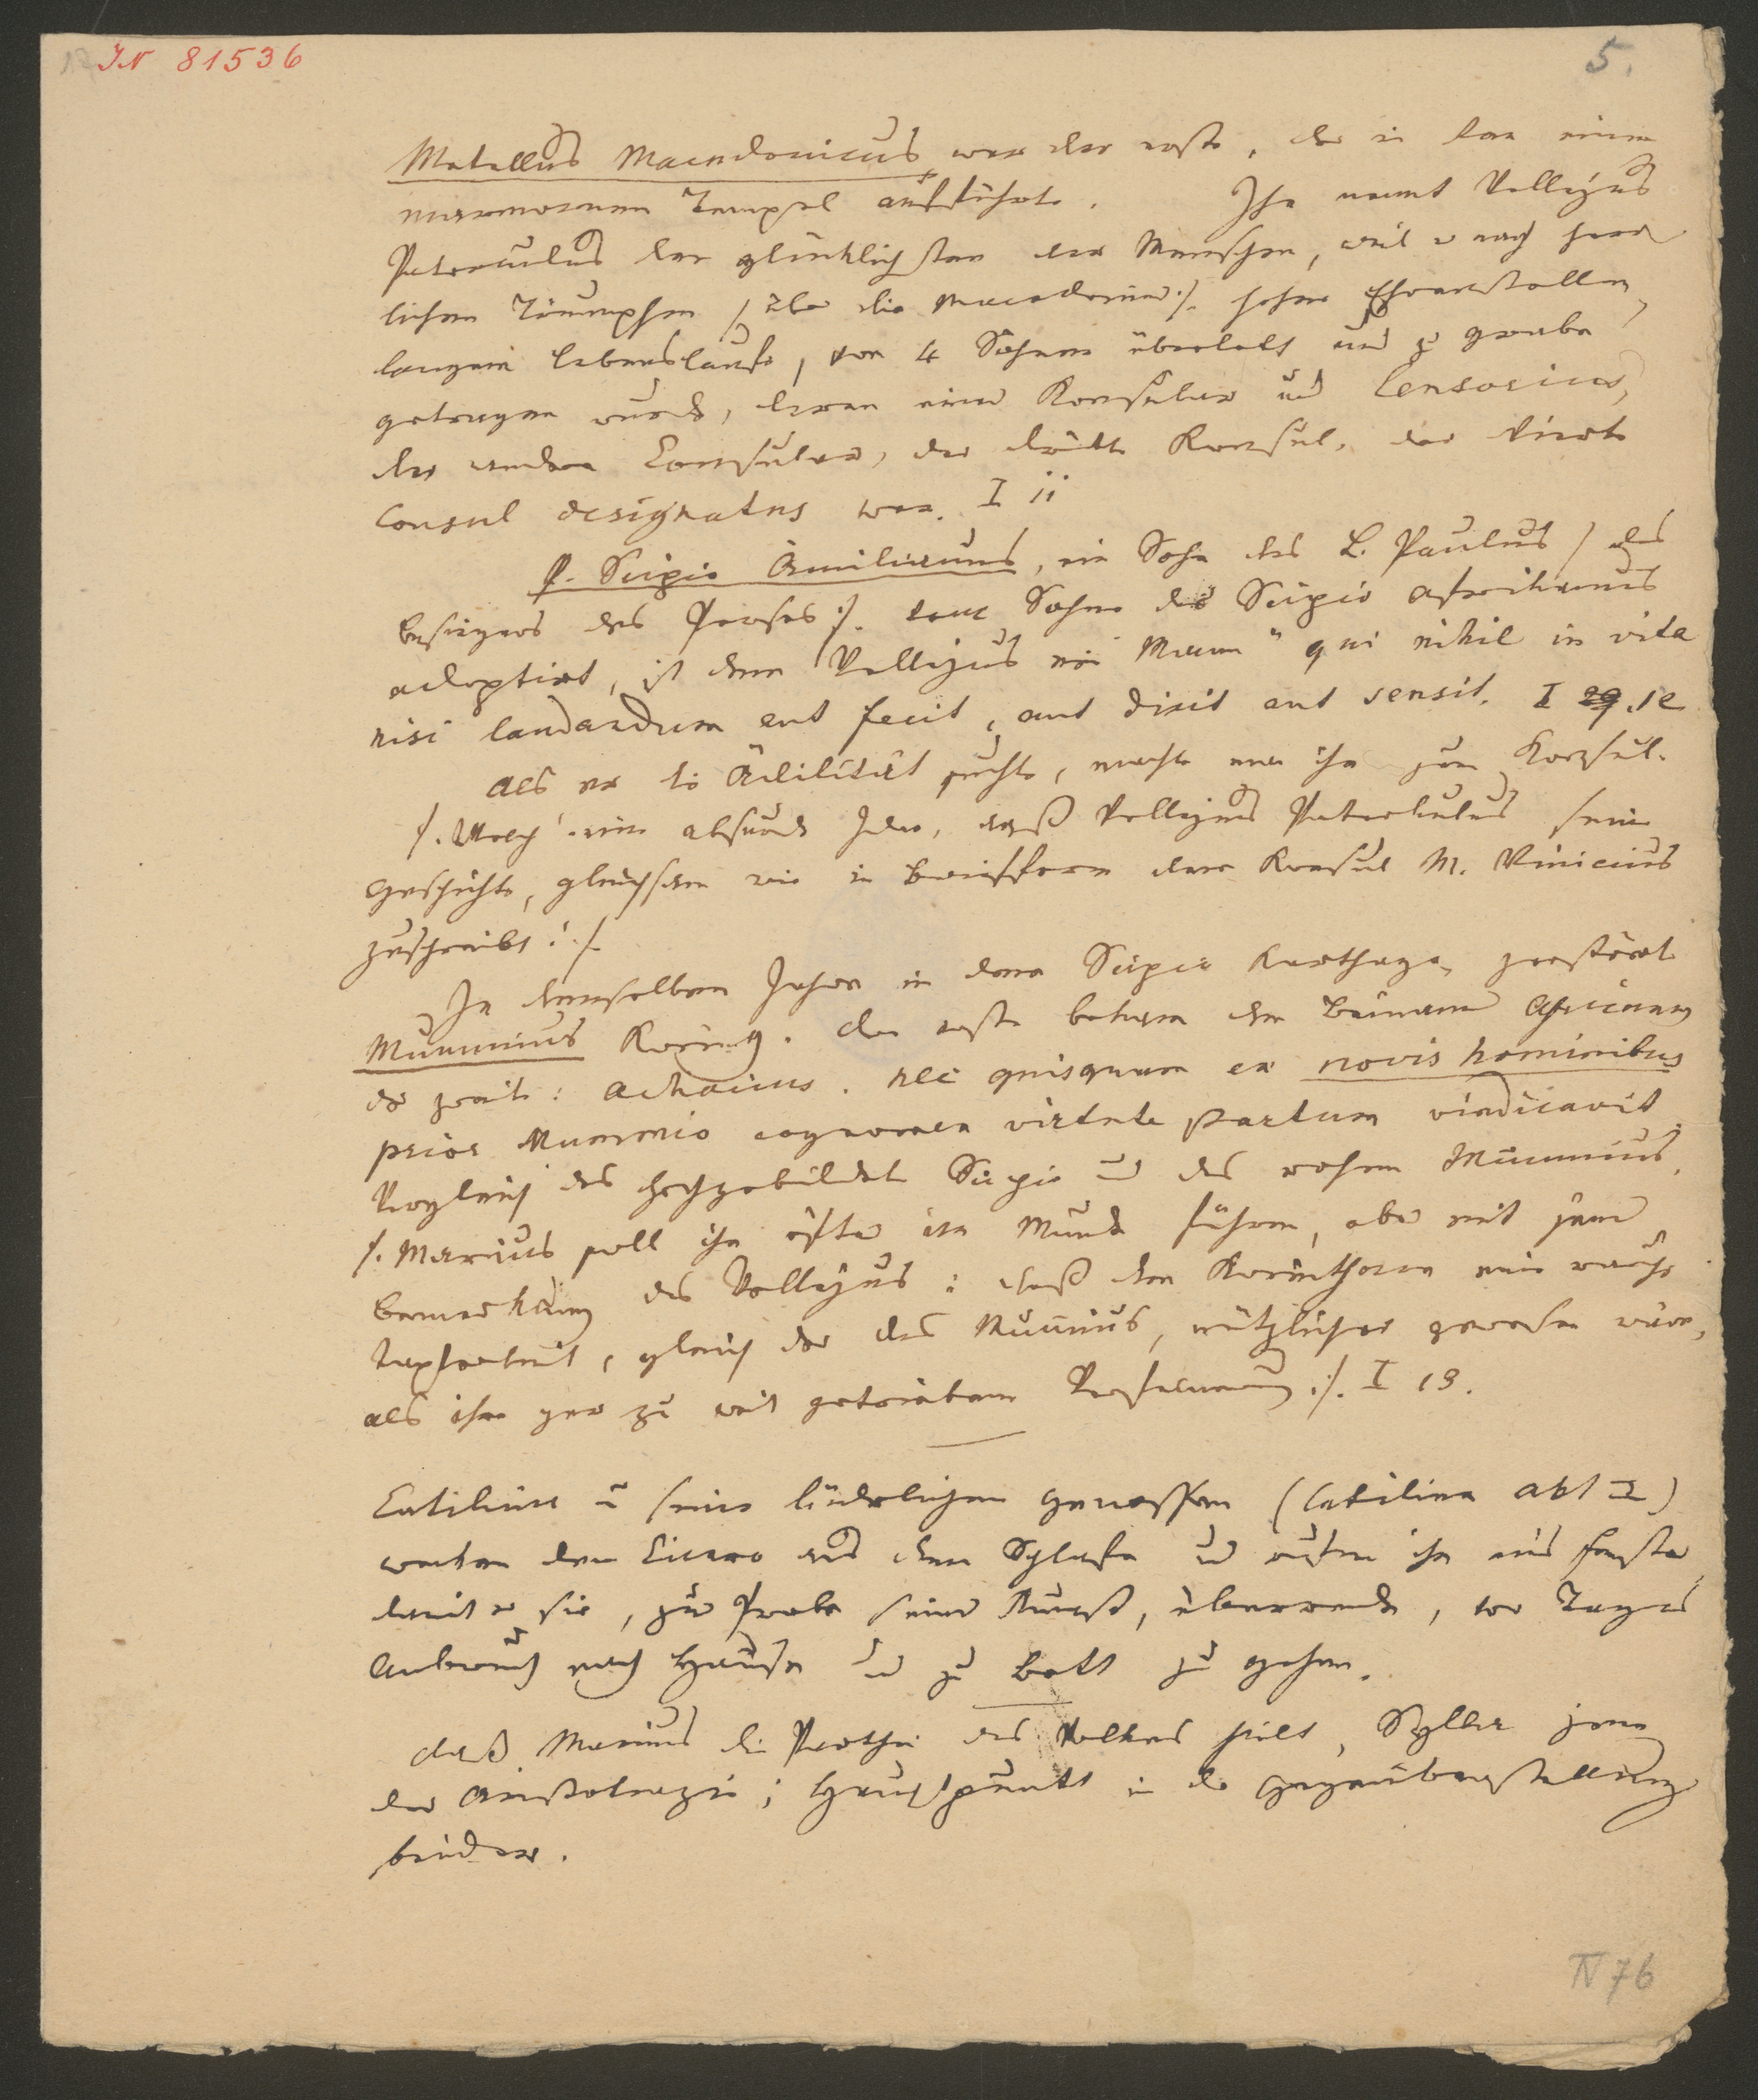 IN 81536
5.
Metellus Macedonicus war der erste, der in Rom einen
marmornen Tempel aufführte. Ihn nennt Vellejus
Paterculus den glücklichsten der Menschen, weil er nach herr
lichen Triumphen /: über die Macedonier :/. hohen Ehrenstellen,
langem Lebenslaufe, von 4 Söhnen überlebt und zu Grabe
getragen wurde, deren einer Konsular und Censorius,
der andere Consular, der dritte Konsul, der vierte
Consul designatus war. I 11
P. Scipio Ämilianus, ein Sohn des L. Paulus / des
Besiegers des Perses :/. vom Sohne des Scipio Afrikanus
adoptirt, ist dem Vellejus ein Mann "qui nihil in vita
nisi laudandum aut fecit, aut dixit aut sensit. I 12
Als er die Ädilität suchte, machte man ihn zum Konsul.
/. Welch' eine absurde Idee, daß Vellejus Paterkulus seine
Geschichte, gleichsam wie in Briefform dem Konsul M. Vinicius
zuschreibt! :/.
In demselben Jahre in dem Scipio Karthago, zerstört
Mummius Korinth. Der erste bekam den Beinamen Africanus
der zweite: Achaicus. Nec quisquam ex novis hominibus
prior Mummio cognomen virtute partum vindicavit.
Vergleich des hochgebildeten Scipio und des rohen Mummius.
/. Marius soll ihn öfter im Munde führen, aber mit jener
Bemerkung des Vellejus: daß den Korinthern eine rauhe
Tapferkeit, gleich der des Mummius, nützlicher gewesen wäre,
als ihre gar zu weit getriebene Verfeinerung :/. I 13.
Catilina u seine liederlichen Genossen (Catilina Akt I)
wecken den Cicero aus dem Schlafe und rufen ihn ans Fenster
damit er sie, zur Probe seiner Kunst, überrede, vor Tages
Anbruch nach Hause und zu Bett zu gehen.
Daß Marius die Parthei des Volkes hielt, Sylla jene
der Aristokrazie; Hauptpunkt in der Gegenüberstellung
beider.
IV 76